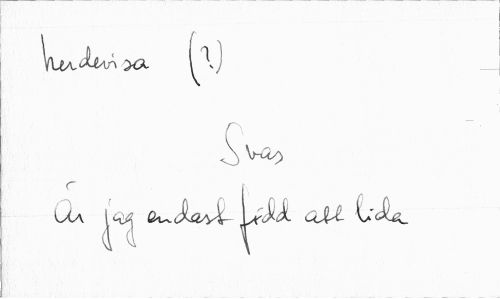 herdevisa (?)
Svas
Är jag endast född att lida